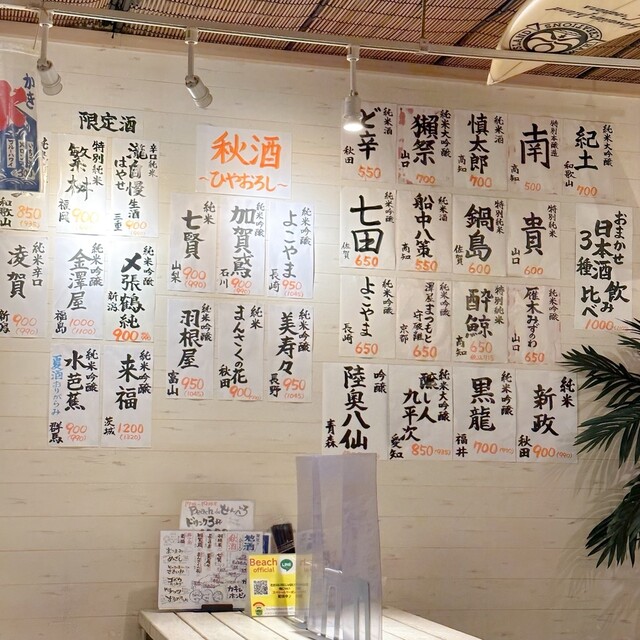 限定酒
辛口純米
瀧自慢
はやせ
生酒
三重 900
特別純米
繁桝
福岡 900
和歌山 850
純米吟醸
〆張鶴 純
新潟 900
純米吟醸
金澤屋
福島 1000
(1100)
純米辛口
凌賀
900
純米吟醸
来福
茨城 1200
(1320)
純米大吟醸
水芭蕉
夏酒
群馬 900
(990)
秋酒
~ひやおろし~
純米吟醸
よこやま
長崎 950
(1045)
純米吟醸
加賀鳶
石川 900
純米
七賢
山梨 900
(990)
純米吟醸
美寿々
長野 950
(1045)
純米
まんさくの花
秋田 900
純米吟醸
羽根屋
富山 950
(1045)
純米大吟醸
紀土
和歌山 700
特別本醸造
南
高知 500
純米吟醸
慎太郎
高知 700
純米大吟醸
獺祭
山口 700
純米酒
ど辛
秋田 550
おまかせ
日本酒飲み
3種比べ
1000
特別純米
貴
山口 600
特別純米
鍋島
佐賀 600
純米酒
船中八策
高知 550
純米
七田
佐賀 650
純米吟醸
雁木 みずのわ
山口 650
特別純米
酔鯨
高知 650
純米吟醸
澤屋まつもと
守破離
京都 650
純米吟醸
よこやま
長崎 650
純米
新政
秋田 900
(990)
純米吟醸
黒龍
福井 700
純米大吟醸
醸し人
九平次
愛知 850
吟醸
陸奥八仙
青森
ドリンク3杯
Beach
official
LINE